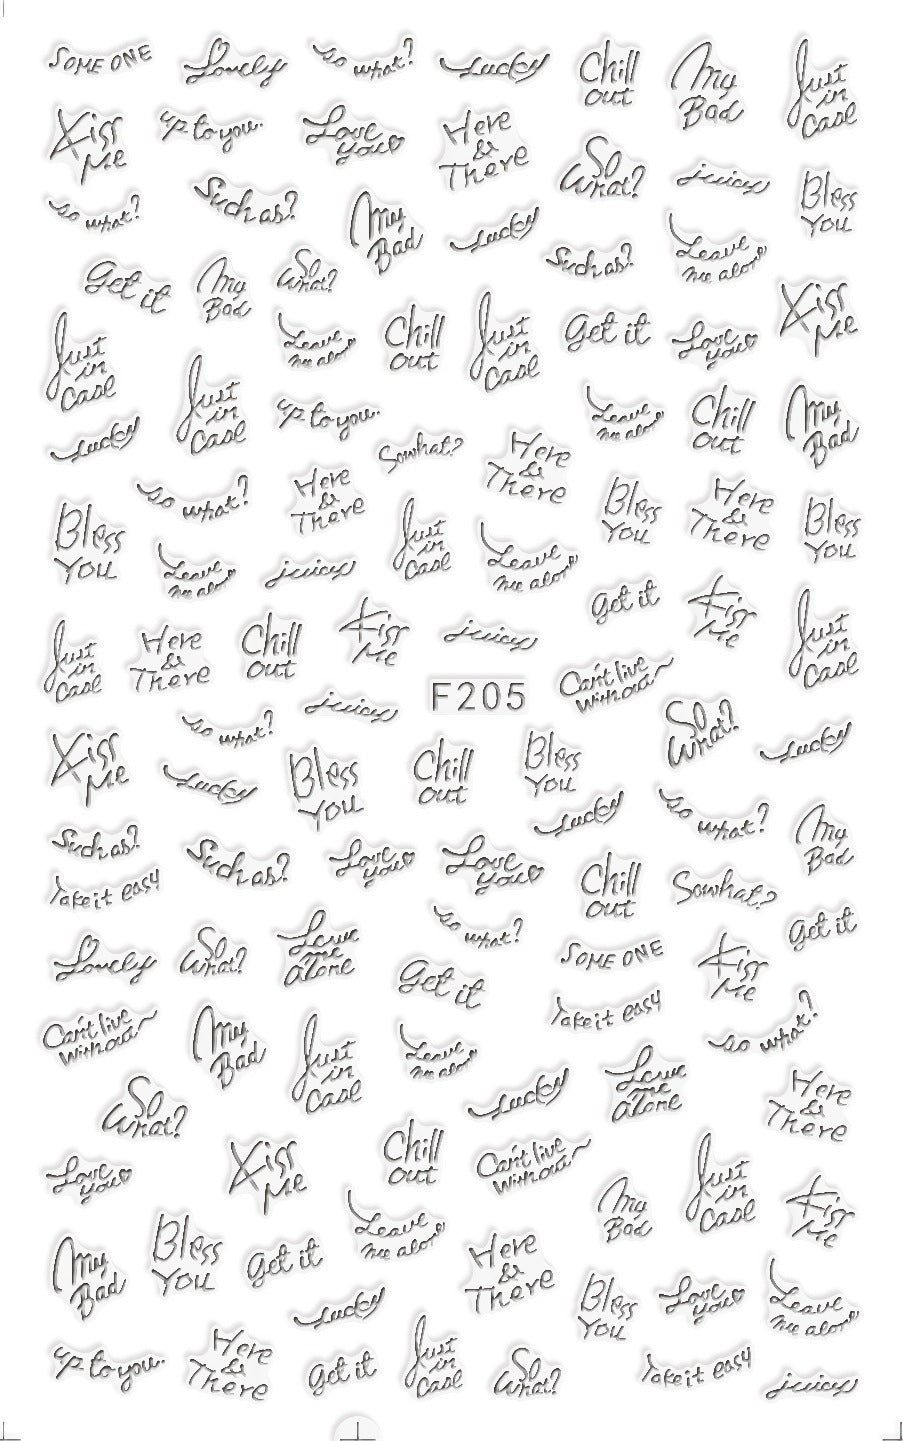 SOME ONE
Lovely
so what?
Lucky
Chill
out
My
Bad
Just
in
Case
Kiss
Me
up to you.
Love
you
Here
&
There
So
What?
juicy
Bless
You
so what?
Such as?
My
Bad
Lucky
Such as?
Leave
me alone
Get it
My
Bad
So
What?
Kiss
Me
Just
in
Case
Leave
me alone
Chill
out
Just
in
Case
Get it
Love
you
Just
in
Case
up to you.
Leave
me alone
Chill
out
My
Bad
Lucky
Sowhat?
Here
&
There
so what?
Here
&
There
Bless
You
Here
&
There
Bless
You
Bless
You
Leave
me alone
juicy
Just
in
Case
Leave
me alone
Get it
Kiss
Me
Just
in
Case
Just
in
Case
Here
&
There
Chill
out
Kiss
Me
juicy
Can't live
without
juicy
F205
so what?
So
What?
Lucky
Kiss
Me
Lucky
Bless
You
Chill
out
Bless
You
Lucky
so what?
My
Bad
Such as?
Such as?
Love
you
Love
you
Chill
out
Sowhat?
Take it easy
Get it
so what?
Lovely
So
What?
Leave
me
alone
Get it
SOME ONE
Kiss
Me
Can't live
without
My
Bad
Just
in
Case
Leave
me alone
Take it easy
so what?
So
What?
Lucky
Leave
me
alone
Here
&
There
Love
you
Kiss
Me
Chill
out
Can't live
without
My
Bad
Just
in
Case
Kiss
Me
My
Bad
Bless
You
Get it
Leave
me alone
Here
&
There
Bless
You
Love
you
Leave
me alone
Lucky
up to you.
Here
&
There
Get it
Just
in
Case
So
What?
Take it easy
juicy